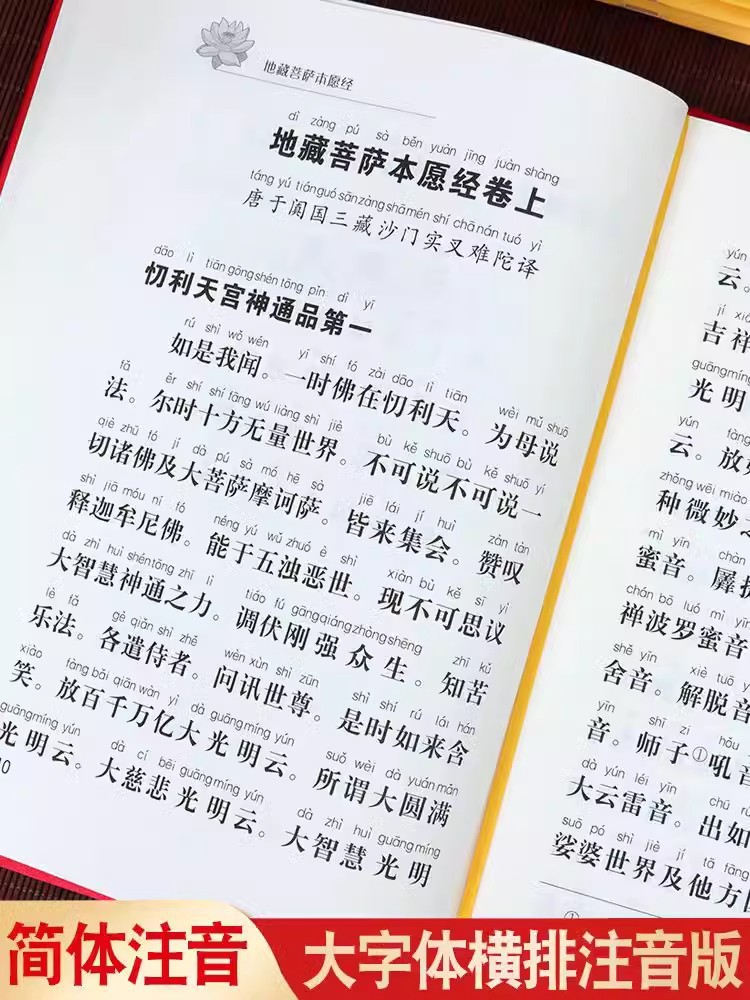 地藏菩萨本愿经
dì zàng pú sà běn yuàn jīng juàn shàng
地藏菩萨本愿经卷上
táng yú tián guó sān zàng shā mén shí chā nán tuó yì
唐于阗国三藏沙门实叉难陀译
dāo lì tiān gōng shén tōng pǐn dì yī
忉利天宫神通品第一
rú shì wǒ wén yì shí fó zài dāo lì tiān wèi mǔ shuō
如是我闻。一时佛在忉利天。为母说
fǎ ěr shí shí fāng wú liàng shì jiè bù kě shuō bù kě shuō yí
法。尔时十方无量世界。不可说不可说一
qiè zhū fó jí dà pú sà mó hē sà jiē lái jí huì zàn tàn
切诸佛及大菩萨摩诃萨。皆来集会。赞叹
shì jiā móu ní fó néng yú wǔ zhuó è shì xiàn bù kě sī yì
释迦牟尼佛。能于五浊恶世。现不可思议
dà zhì huì shén tōng zhī lì tiáo fú gāng qiáng zhòng shēng zhī kǔ
大智慧神通之力。调伏刚强众生。知苦
lè fǎ gè qiǎn shì zhě wèn xùn shì zūn shì shí rú lái hán
乐法。各遣侍者。问讯世尊。是时如来含
xiào fàng bǎi qiān wàn yì dà guāng míng yún suǒ wèi dà yuán mǎn
笑。放百千万亿大光明云。所谓大圆满
guāng míng yún dà cí bēi guāng míng yún dà zhì huì guāng míng
光明云。大慈悲光明云。大智慧光明
yún
云。
jí xiá
吉祥
guāng míng
光明
yún fàng
云。放
zhǒng wēi miào
种微妙
mì yīn chàn
蜜音。羼
chán bō luó mì yīn
禅波罗蜜音
shě yīn xiè tuō
舍音。解脱音
yīn shī zi hǒu
音。师子①吼音
dà yún léi yīn chū rú
大云雷音。出如
suō pó shì jiè jí tā fāng
娑婆世界及他方
①
简体注音
大字体横排注音版